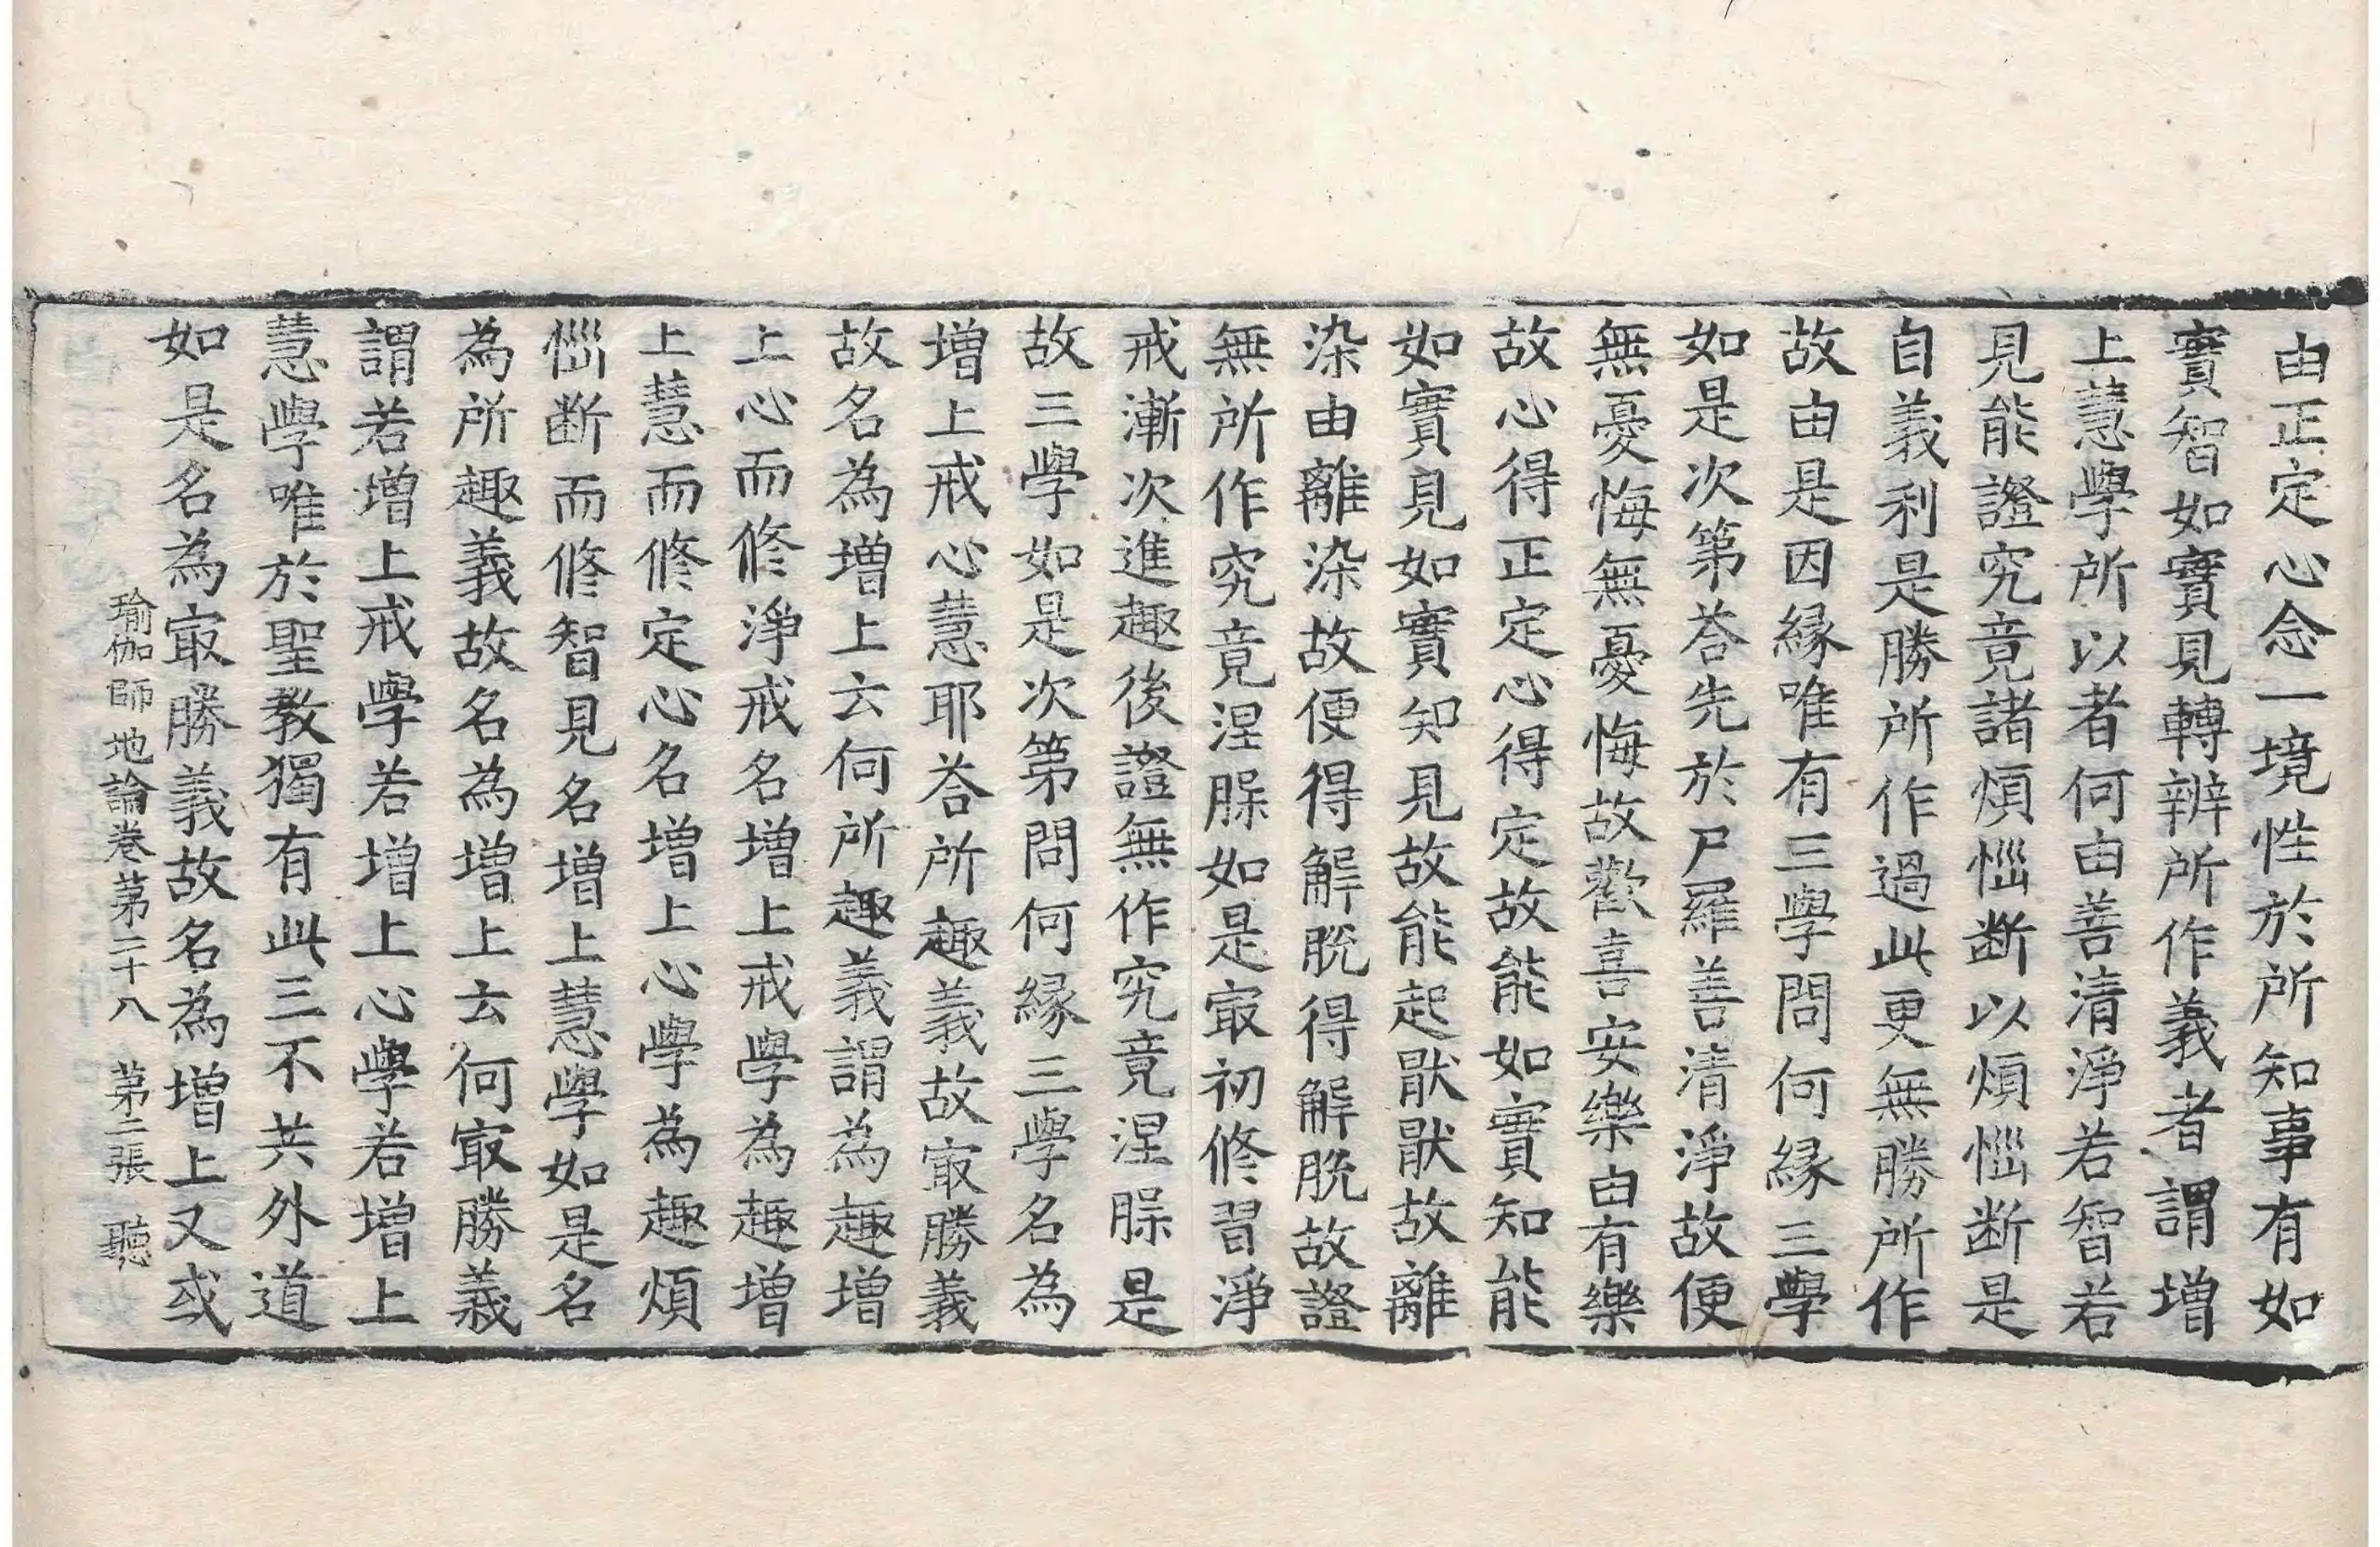 由正定心念一境性於所知事有如
實智如實見轉辨所作義者謂增
上慧學所以者何由善清淨若智若
見能證究竟諸煩惱斷以煩惱斷是
自義利是勝所作過此更無勝所作
故由是因緣唯有三學問何緣三學
如是次第荅先於尸羅善清淨故便
無憂悔無憂悔故歡喜安樂由有樂
故心得正定心得定故能如實知能
如實見如實知見故能起猒猒故離
染由離染故便得解脫得解脫故證
無所作究竟涅槃如是㝡初修習淨
戒漸次進趣後證無作究竟涅槃是
故三學如是次第問何緣三學名為
增上戒心慧耶荅所趣義故㝡勝義
故名為增上云何所趣義謂為趣增
上心而修淨戒名增上戒學為趣增
上慧而修定心名增上心學為趣煩
惱斷而修智見名增上慧學如是名
為所趣義故名為增上云何㝡勝義
謂若增上戒學若增上心學若增上
慧學唯於聖教獨有此三不共外道
如是名為㝡勝義故名為增上又或
瑜伽師地論卷苐二十八 苐二張 聽